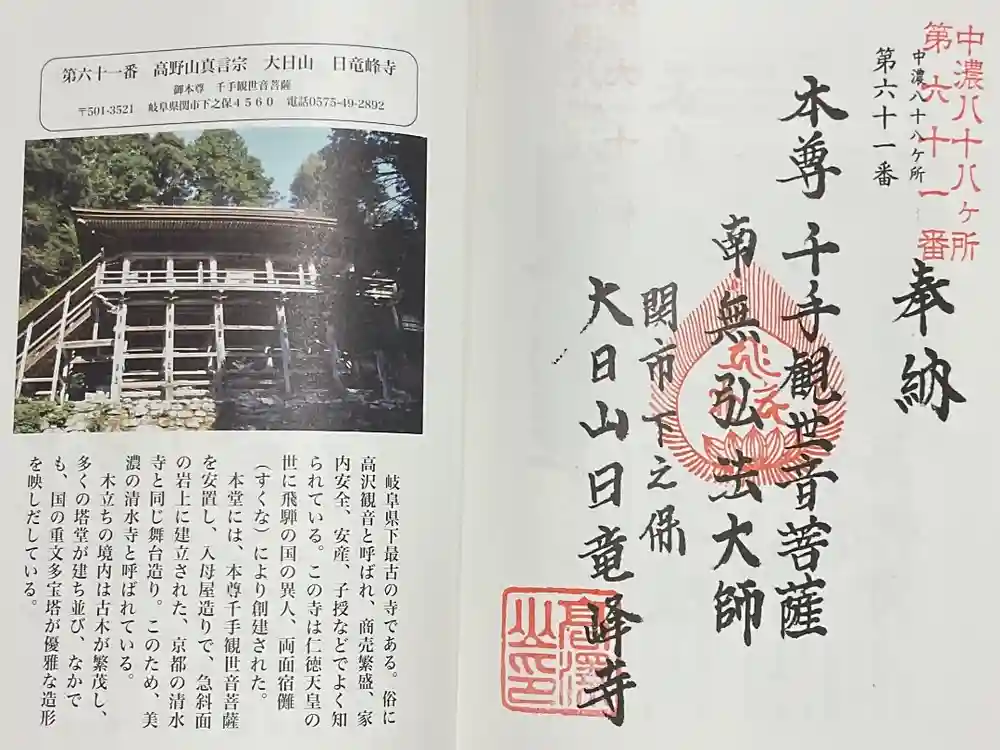 第六十一番 高野山真言宗 大日山 日竜峰寺
御本尊 千手観世音菩薩
〒501-3521 岐阜県関市下之保4560 電話0575-49-2892
岐阜県下最古の寺である。俗に
高沢観音と呼ばれ、商売繁盛、家
内安全、安産、子授などでよく知
られている。この寺は仁徳天皇の
世に飛騨の国の異人、両面宿儺
(すくな)により創建された。
本堂には、本尊千手観世音菩薩
を安置し、入母屋造りで、急斜面
の岩上に建立された、京都の清水
寺と同じ舞台造り。このため、美
濃の清水寺と呼ばれている。
木立ちの境内は古木が繁茂し、
多くの塔堂が建ち並び、なかで
も、国の重文多宝塔が優雅な造形
を映しだしている。
中濃八十八ヶ所
第六十一番
中濃八十八ヶ所
第六十一番
奉納
本尊千手観世音菩薩
南無弘法大師
関市下之保
大日山日竜峰寺
高澤
山印